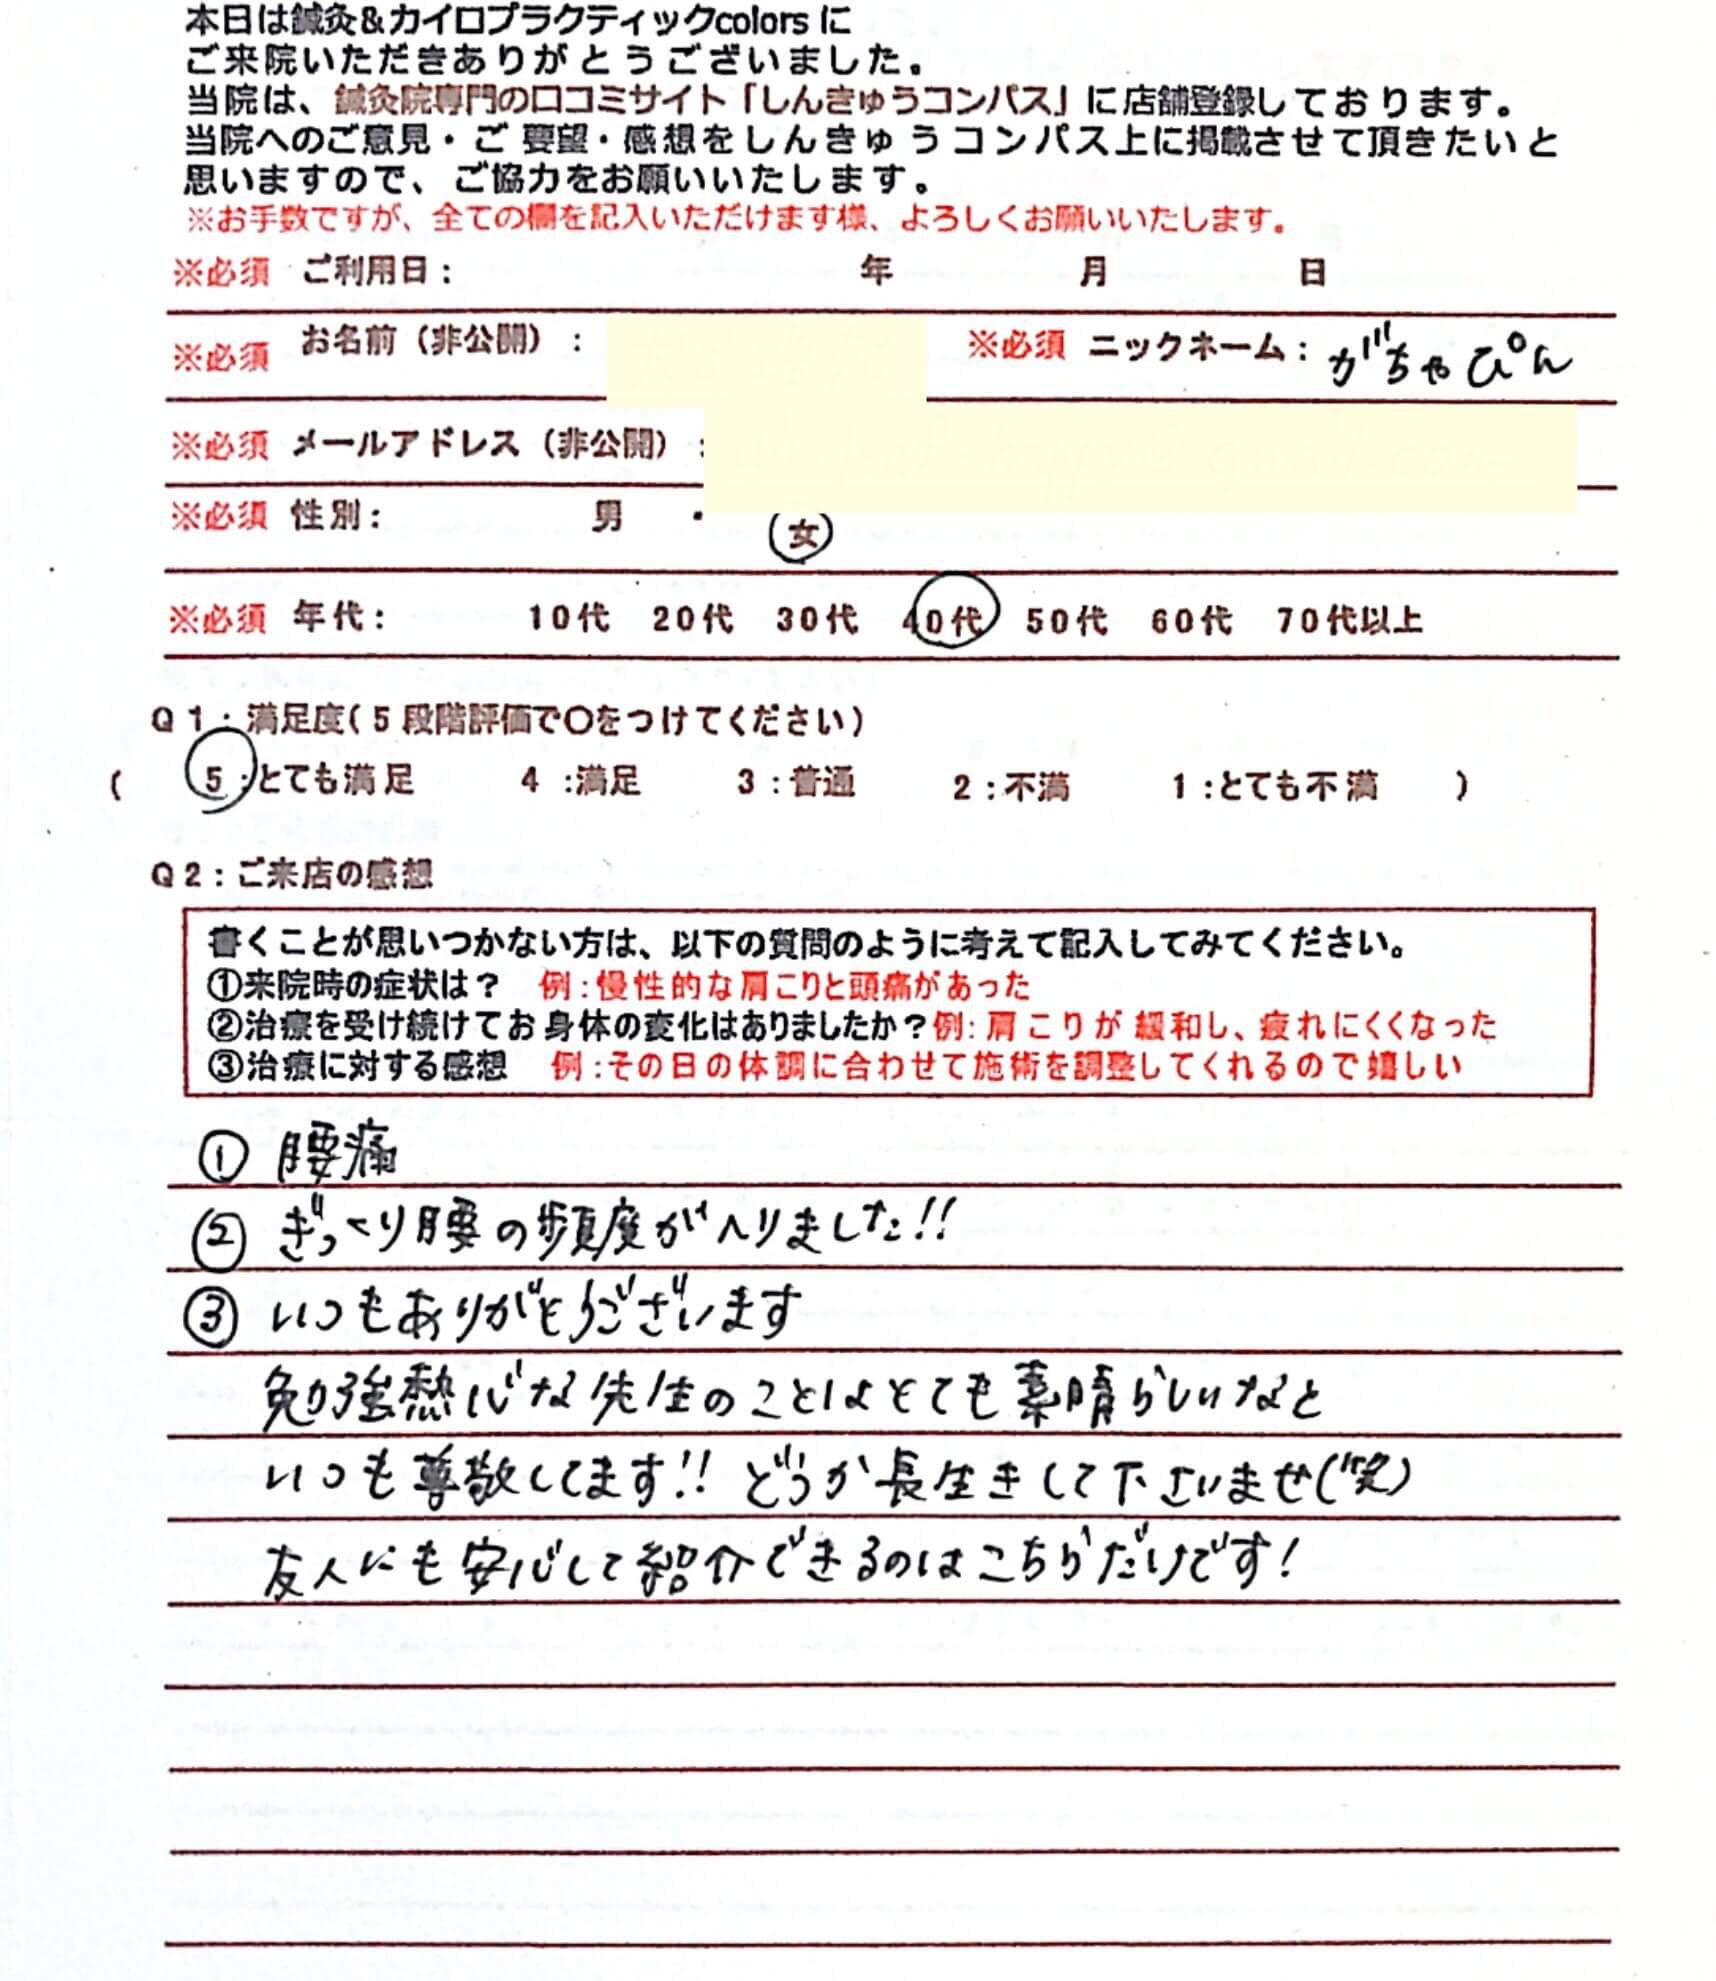 本日は鍼灸&カイロプラクティックcolorsに
ご来院いただきありがとうございました。
当院は、鍼灸院専門の口コミサイト「しんきゅうコンパス」に店舗登録しております。
当院へのご意見・ご要望・感想をしんきゅうコンパス上に掲載させて頂きたいと
思いますので、ご協力をお願いいたします。
※お手数ですが、全ての欄を記入いただけます様、よろしくお願いいたします。
※必須 ご利用日: 年 月 日
※必須 お名前(非公開): ※必須 ニックネーム: がちゃぴん
※必須 メールアドレス(非公開):
※必須 性別: 男 ・ 女
※必須 年代: 10代 20代 30代 40代 50代 60代 70代以上
Q1:満足度(5段階評価で〇をつけてください)
( 5:とても満足 4:満足 3:普通 2:不満 1:とても不満 )
Q2:ご来店の感想
書くことが思いつかない方は、以下の質問のように考えて記入してみてください。
①来院時の症状は? 例:慢性的な肩こりと頭痛があった
②治療を受け続けてお身体の変化はありましたか?例:肩こりが緩和し、疲れにくくなった
③治療に対する感想 例:その日の体調に合わせて施術を調整してくれるので嬉しい
① 腰痛
② ぎっくり腰の頻度がへりました!!
③ いつもありがとうございます
勉強熱心な先生のことはとても素晴らしいなと
いつも尊敬してます!! どうか長生きして下さいませ(笑)
友人にも安心して紹介できるのはこちらだけです!